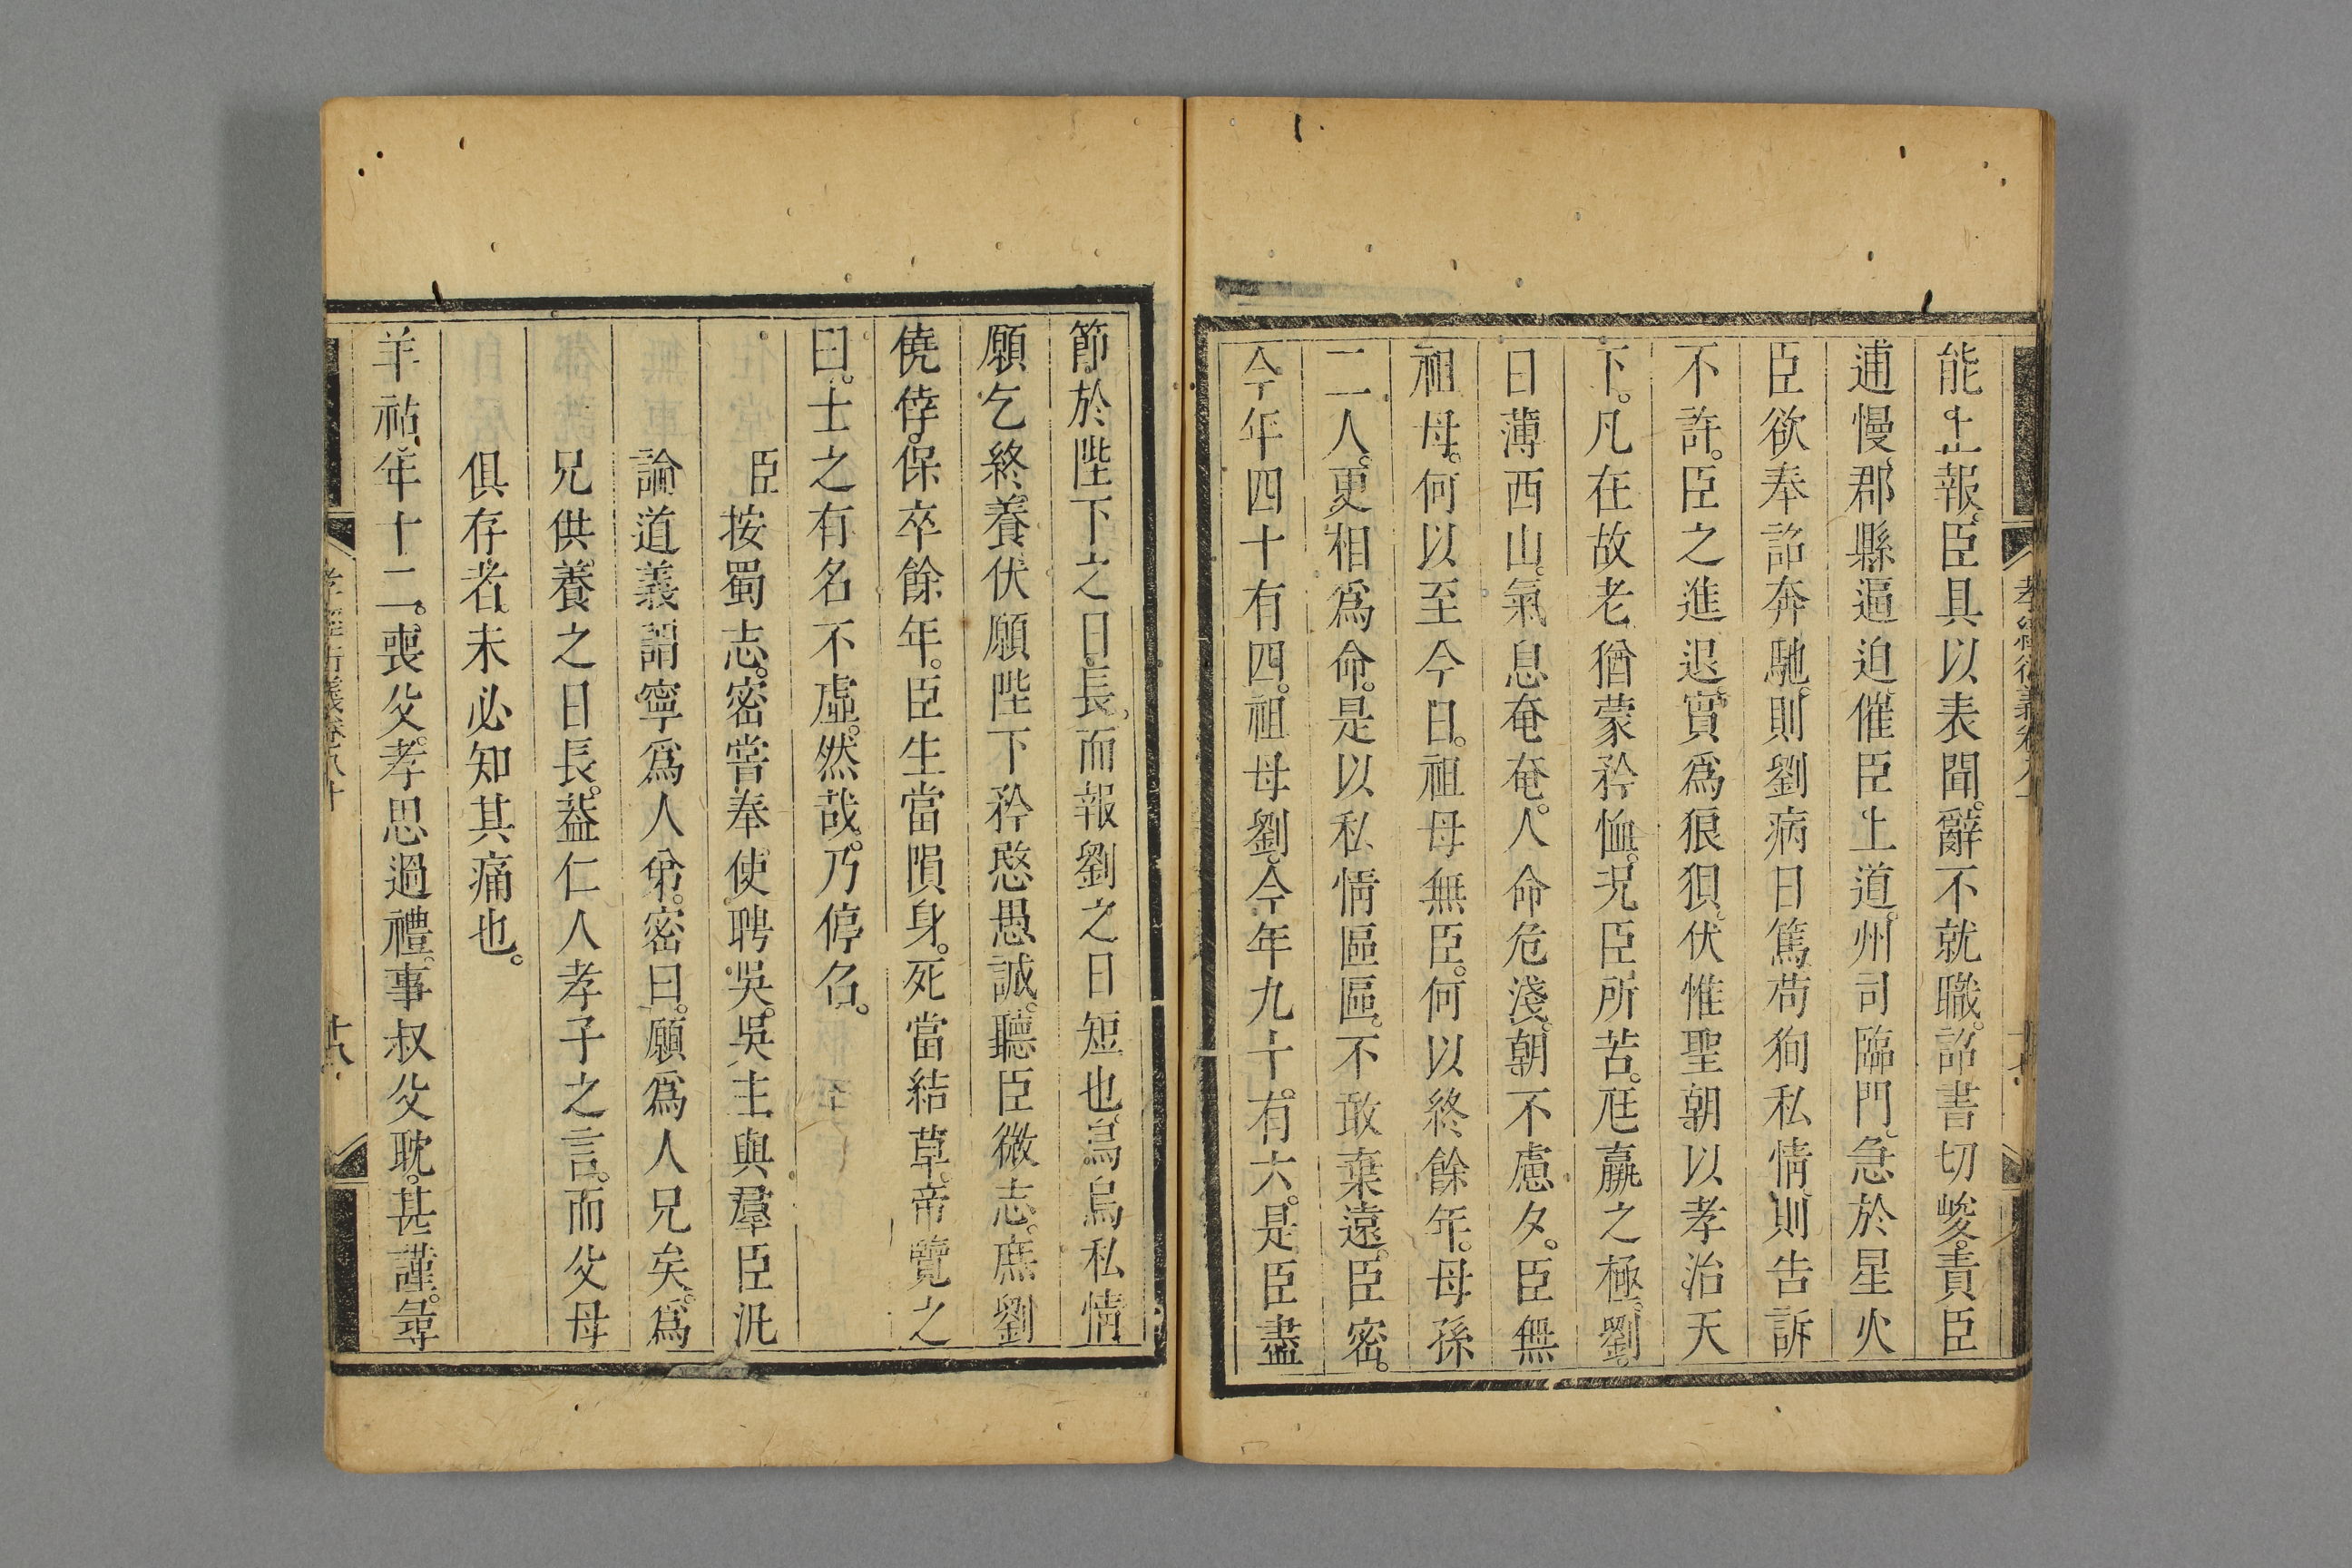 能上報。臣具以表聞。辭不就職。詔書切峻。責臣
逋慢。郡縣逼迫。催臣上道。州司臨門。急於星火
臣欲奉詔奔馳。則劉病日篤。苟狥私情。則告訴
不許。臣之進退。實爲狼狽。伏惟聖朝以孝治天
下。凡在故老。猶蒙矜恤。況臣所苦。尫羸之極。劉。
日薄西山。氣息奄奄。人命危淺。朝不慮夕。臣無
祖母。何以至今日。祖母無臣。何以終餘年。母孫
二人。更相爲命。是以私情區區。不敢棄遠。臣密。
今年四十有四。祖母劉。今年九十。有六。是臣盡
節於陛下之日長。而報劉之日短也。烏烏私情
願乞終養。伏願陛下矜愍愚誠。聽臣微志。庶劉
僥倖。保卒餘年。臣生當隕身。死當結草。帝覽之
曰。士之有名不虛。然哉。乃停召。
臣按蜀志。密嘗奉使聘吳。吳主與羣臣汎
論道義。謂寧爲人弟。密曰。願爲人兄矣。爲
兄供養之日長。葢仁人孝子之言。而父母
俱存者。未必知其痛也。
羊祜。年十二。喪父。孝思過禮。事叔父耽。甚謹。嘗
孝經衍義卷八十